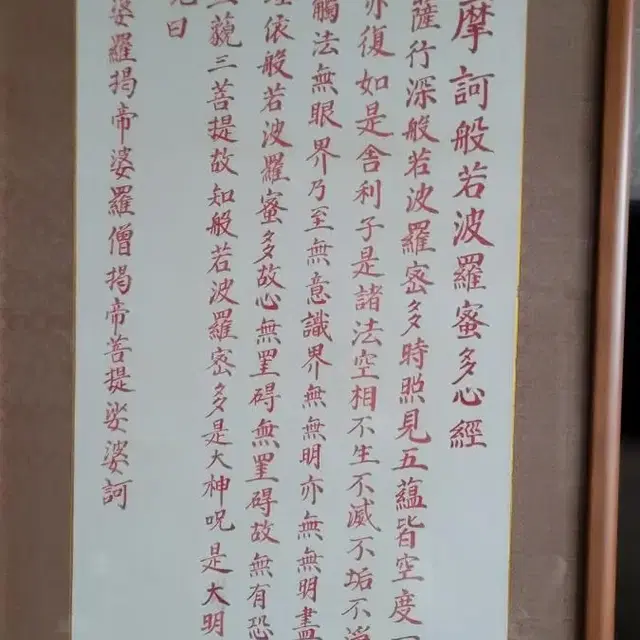 摩訶般若波羅蜜多心經
薩行深般若波羅密多時照見五蘊皆空度
亦復如是舍利子是諸法空相不生不滅不垢不
觸法無眼界乃至無意識界無無明亦無無明盡
依般若波羅蜜多故心無罣碍無罣碍故無有恐
藐三菩提故知般若波羅密多是大神呪是大明
曰
婆羅揭帝婆羅僧揭帝菩提娑婆訶